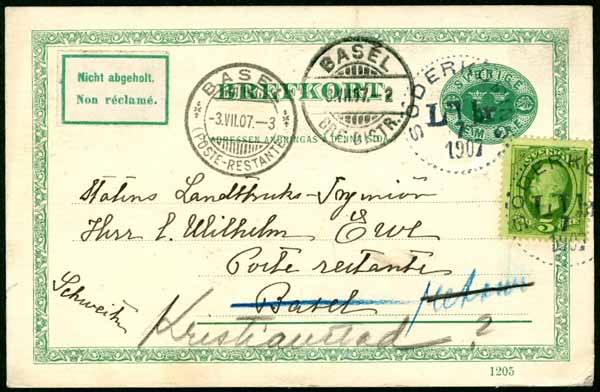 Nicht abgeholt.
Non réclamé.
BASEL
-3.VII.07.-3
(POSTE-RESTANTE)
BASEL
BREFKORT.
ADRESSEN ANBRINGAS Å DENNA SIDA
SVERIGE
FEM
1907
5
1907
Statens Landtbruks-Ingeniör
Herr E. Wilhelm Ewe
Poste restante
Basel retour
Schweitz
Kristianstad ?
1205